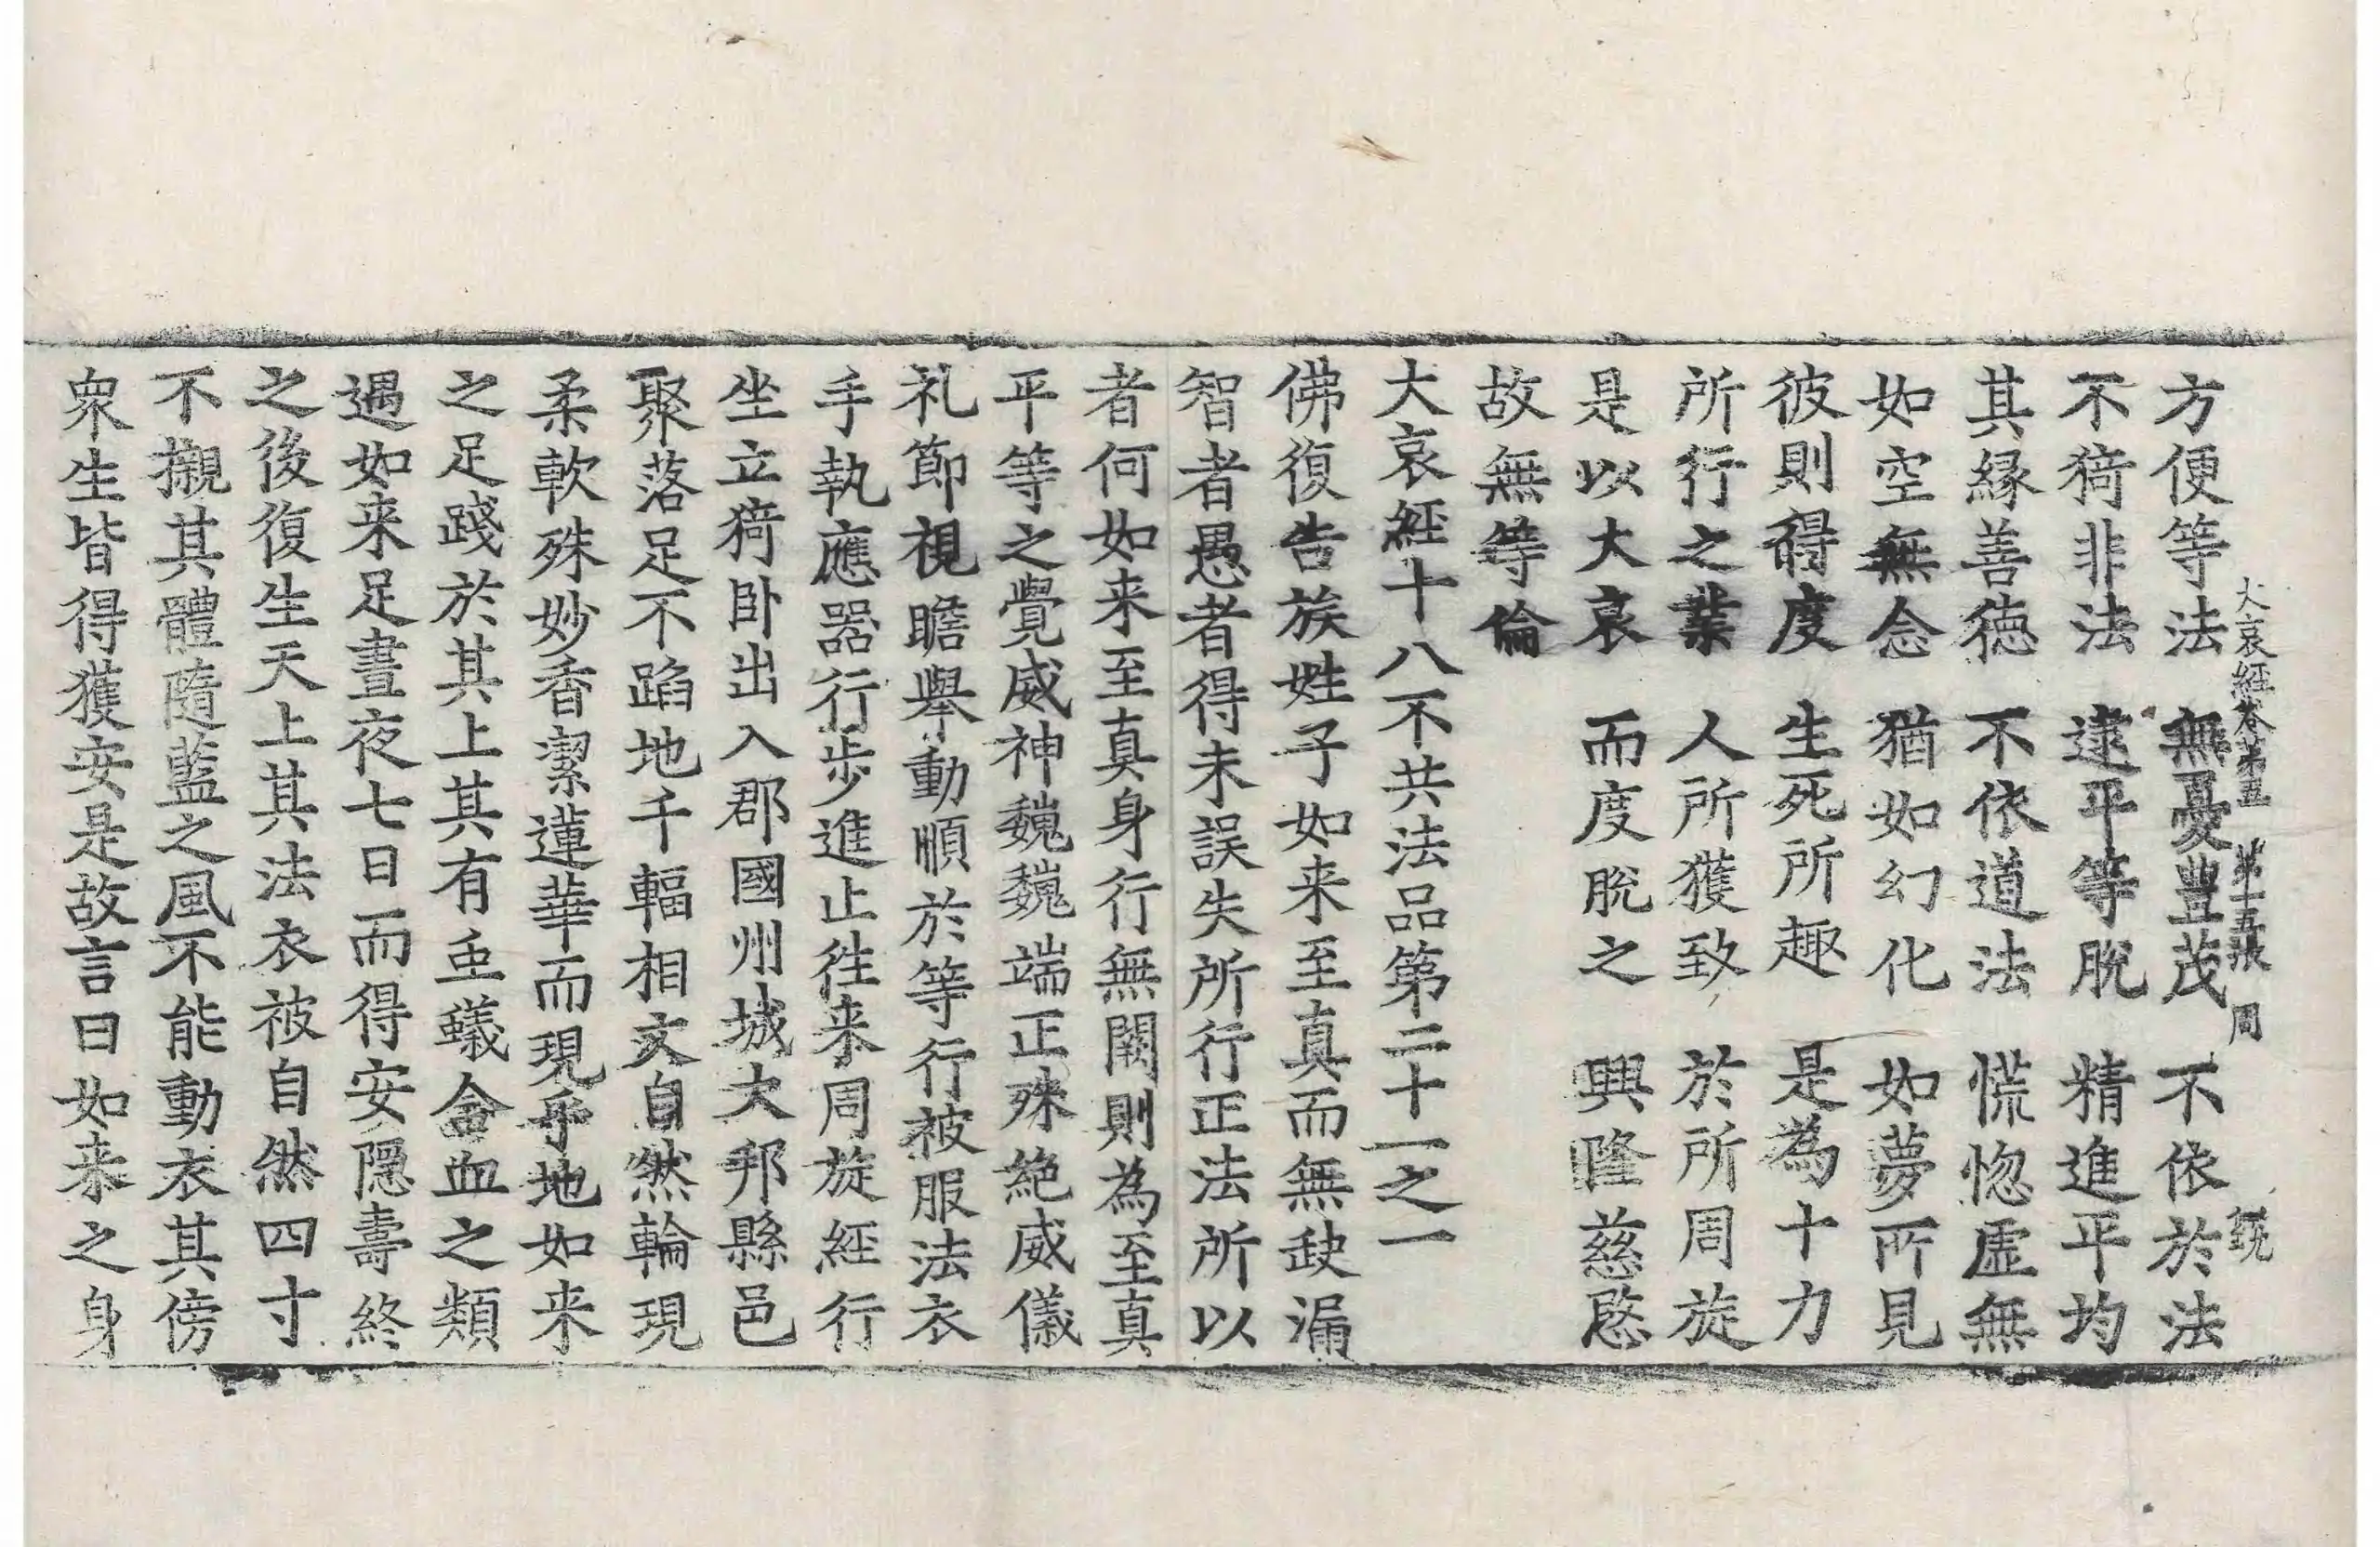 大哀經卷第五　第十五張　周　銃
方便等法　無憂豐茂　不依於法
不猗非法　逮平等脫　精進平均
其縁善徳　不依道法　慌惚虛無
如空無念　猶如幻化　如夢所見
彼則得度　生死所趣　是為十力
所行之業　人所獲致　於所周旋
是以大哀　而度脫之　興隆慈愍
故無等倫
大哀經十八不共法品第二十一之一
佛復告族姓子如来至真而無缺漏
智者愚者得未誤失所行正法所以
者何如来至真身行無闕則為至真
平等之覺威神巍巍端正殊絕威儀
礼節視瞻舉動順於等行被服法衣
手執應器行步進止往来周旋經行
坐立猗卧出入郡國州城大邦縣邑
聚落足不蹈地千輻相文自然輪現
柔軟殊妙香潔蓮華而現乎地如来
之足踐於其上其有虫蟻含血之類
遇如来足晝夜七日而得安隱壽終
之後復生天上其法衣被自然四寸
不襯其體隨藍之風不能動衣其傍
衆生皆得獲安是故言曰如来之身